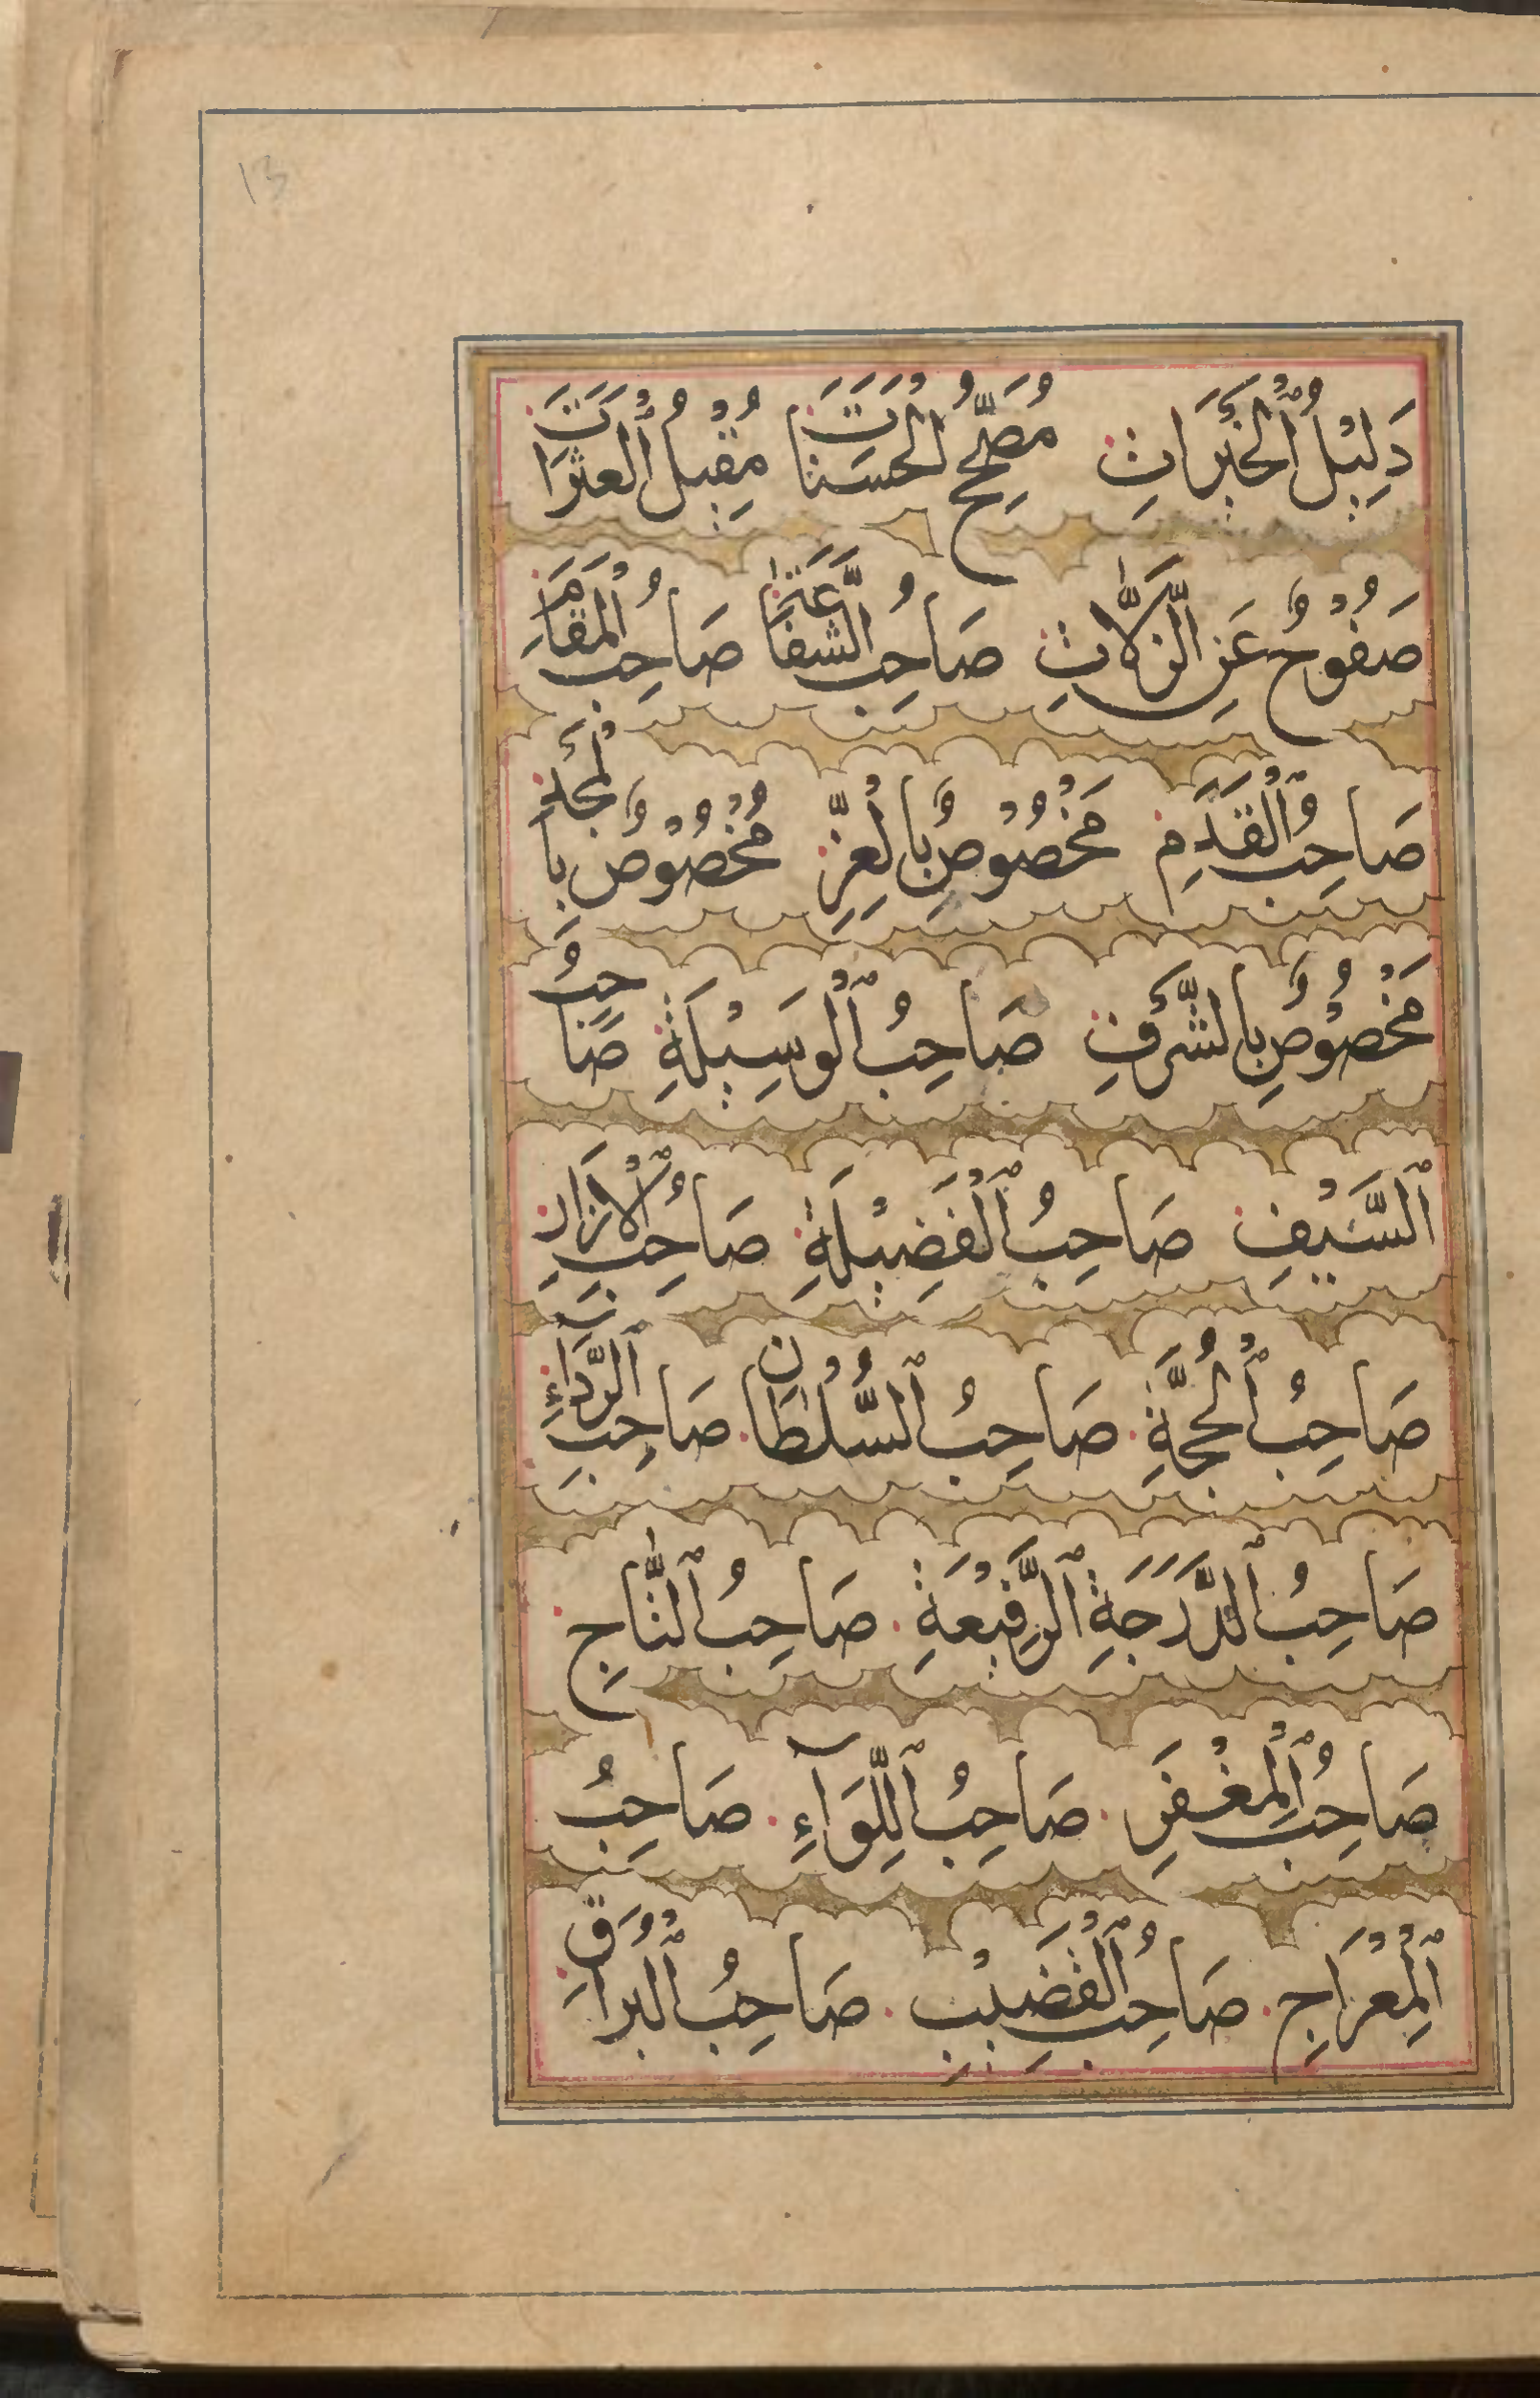 13
دَلِيْلُ ٱلْخَيْرَاتِ مُصَحِّحُ الْحَسَنَاتَ مُقِيْلُ ٱلْعَثَرَاتَ
صَفُوْحٌ عَنِ الزَّلَّاتِ صَاحِبُ الشَّفَاعَةِ صَاحِبُ الْمَقَامَِ
صَاحِبُ ٱلْقَدَمِ مَخْصُوْصٌ بِالْعِزِّ مَخْصُوْصٌ بِالْمَجْدِ
مَخْصُوْصٌ بِالشَّرَفِ صَاحِبُ ٱلْوَسِيْلَةِ صَاحِبُ
ٱلسَّيْفِ صَاحِبُ ٱلْفَضِيْلَةِ صَاحِبُ ٱلْاِزَارِ
صَاحِبُ ٱلْحُجَّةِ صَاحِبُ ٱلسُّلْطَانِ صَاحِبُ ٱلرِّدَآءِ
صَاحِبُ ٱلدَّرَجَةِ ٱلرَّفِيْعَةِ صَاحِبُ ٱلتَّاجِ
صَاحِبُ ٱلْمِغْفَرِ صَاحِبُ ٱللِّوَآءِ صَاحِبُ
ٱلْمِعْرَاجِ صَاحِبُ ٱلْقَضِيْبِ صَاحِبُ ٱلْبُرَاقِ